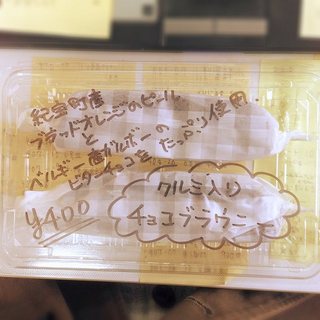 紀宝町産
ブラッドオレンジのピール
と
ベルギー産カレボーの
ビターチョコをたっぷり使用.
クルミ入り
チョコブラウニー
¥400